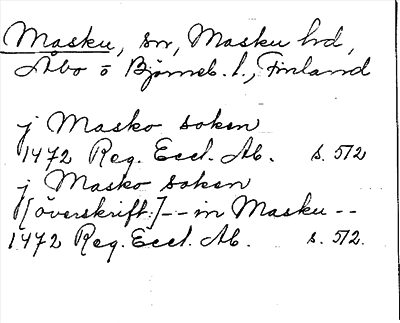 Masku, sn, Masku hd,
Åbo o Björneb. l., Finland
j Masko soken
1472 Reg. Eccl. Ab. s. 512
j Masko soken
[överskrift:] -- in Masku --
1472 Reg. Eccl. Ab. s. 512.